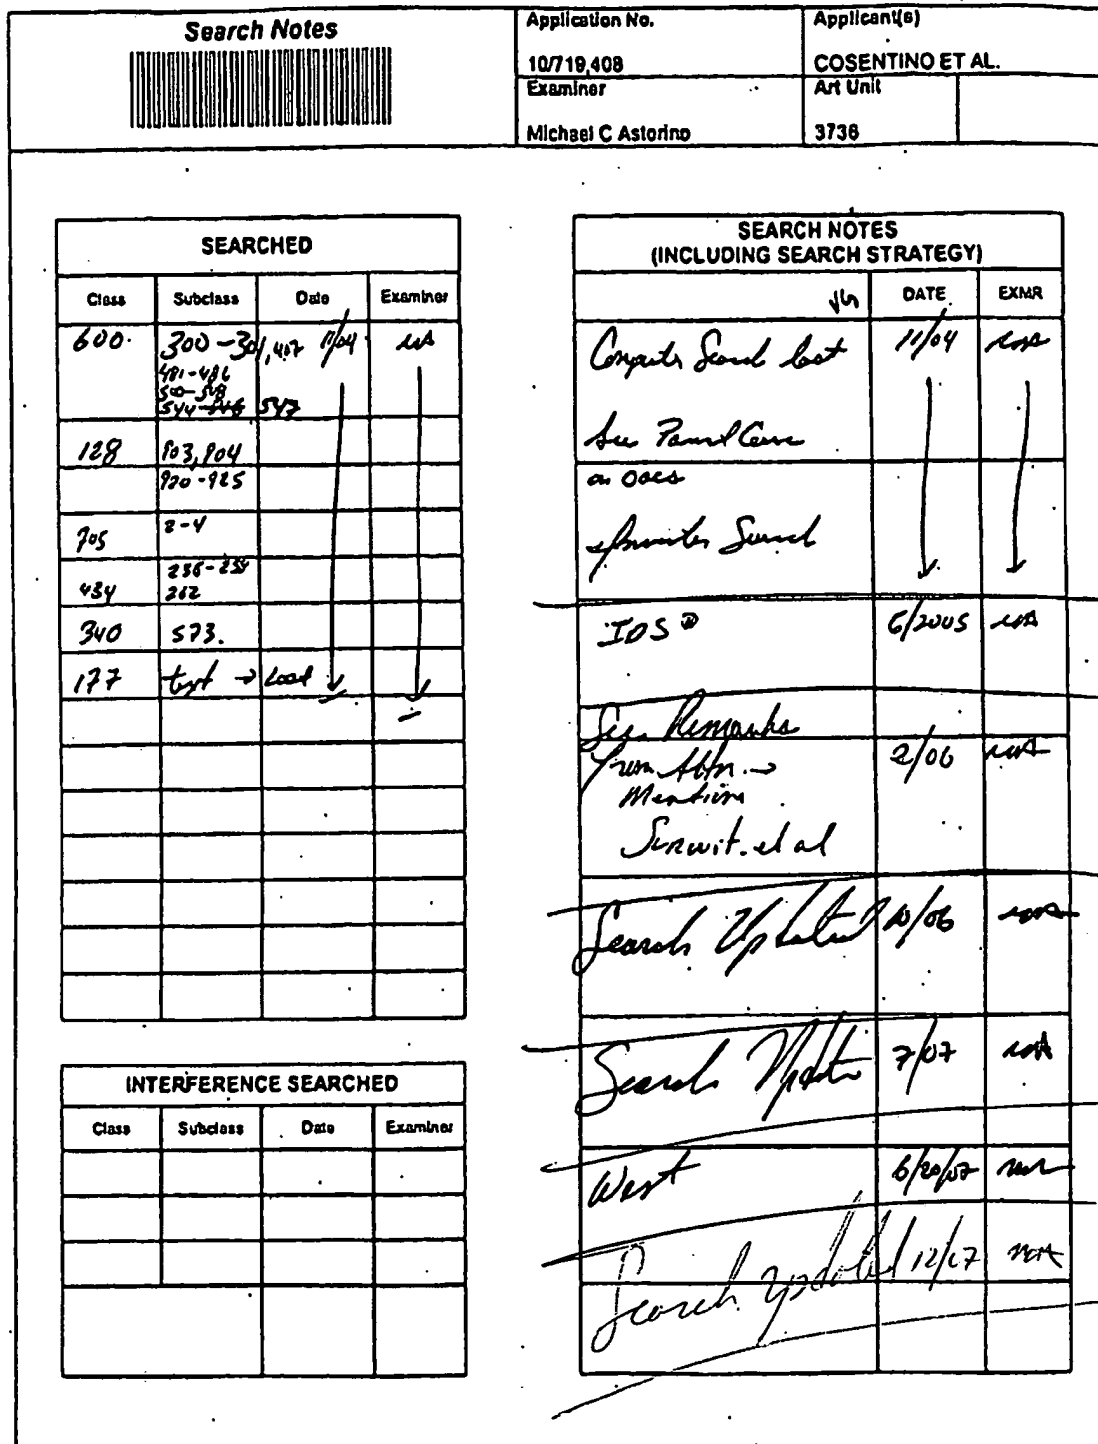 Search Notes
Application No.
10/719,408
Applicant(s)
COSENTINO ET AL.
Examiner
Michael C Astorino
Art Unit
3736
SEARCHED
Class Subclass Date Examiner
600. 300-301, 407 11/04 MA
481-486
500-508
547
128 903,904
920-925
705 2-4
434 236-254
262
340 573.
177 text → load
INTERFERENCE SEARCHED
Class Subclass Date Examiner
SEARCH NOTES
(INCLUDING SEARCH STRATEGY)
DATE EXMR
Computer Search 11/04 MCA
See
on OACS
Search
IDS 6/2005 MCA
See Remarks
From Attn. → 2/06 MCA
Mentions
Surwit. et al
Search Updated 10/06 MCA
Search Update 7/07 MCA
West 6/20/07 MCA
Search updated 12/07 MCA